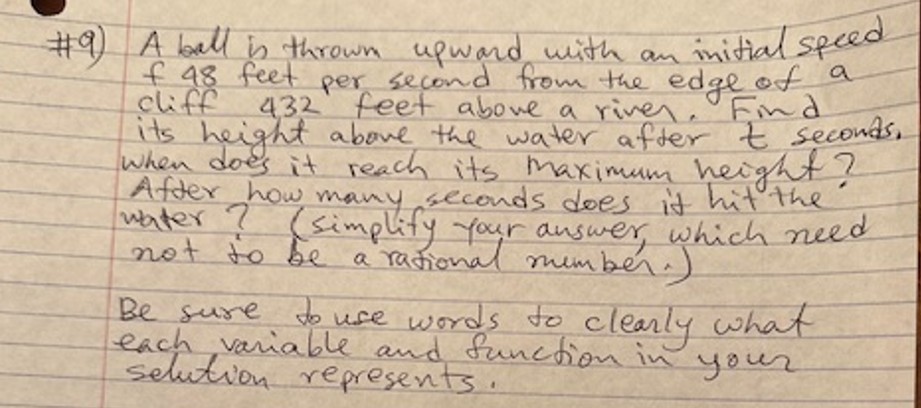 #9) A ball is thrown upward with an initial speed
f 48 feet per second from the edge of a
cliff 432 feet above a river. Find
its height above the water after t seconds.
when does it reach its maximum height?
After how many seconds does it hit the
water? (simplify your answer, which need
not to be a rational number.)
Be sure to use words to clearly what
each variable and function in your
solution represents.